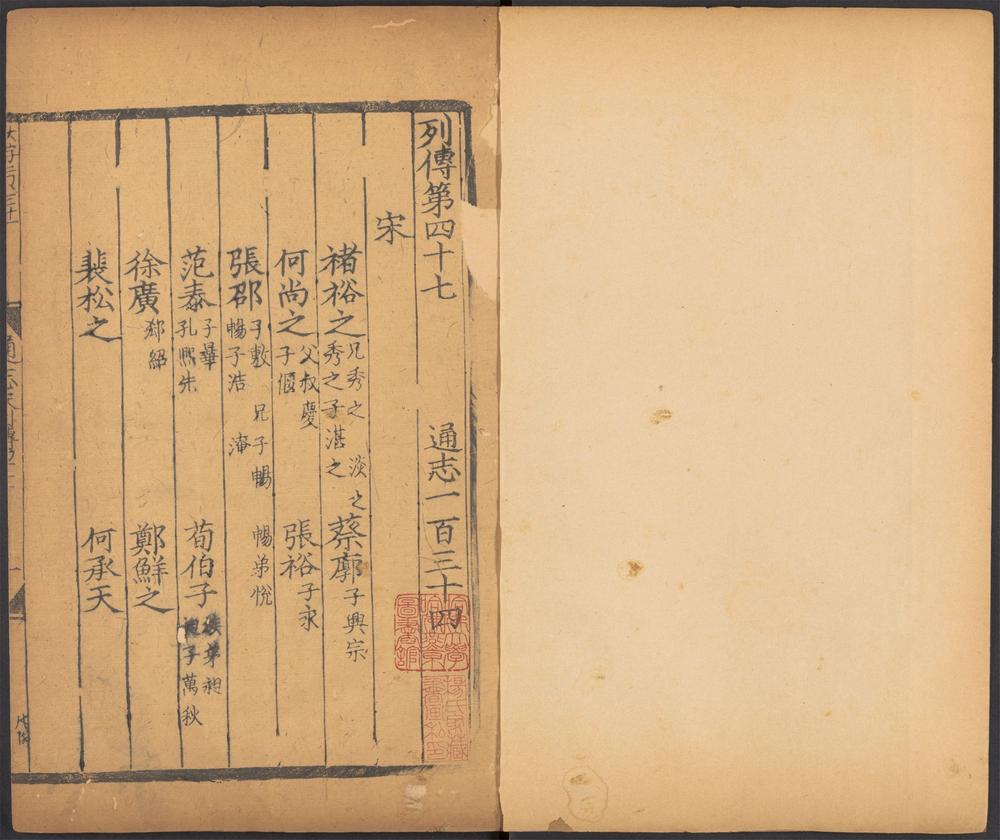 列傳第四十七 通志一百三十四
宋
褚裕之 兄秀之 淡之 秀之子湛之 蔡廓 子興宗
何尚之 父叔慶 子偃 張裕 子永
張邵 子敷 兄子暢 暢弟悅 暢子浩 淹
范泰 子曅 孔熙先 荀伯子 族弟昶 昶子萬秋
徐廣 郄紹 鄭鮮之
裴松之 何承天